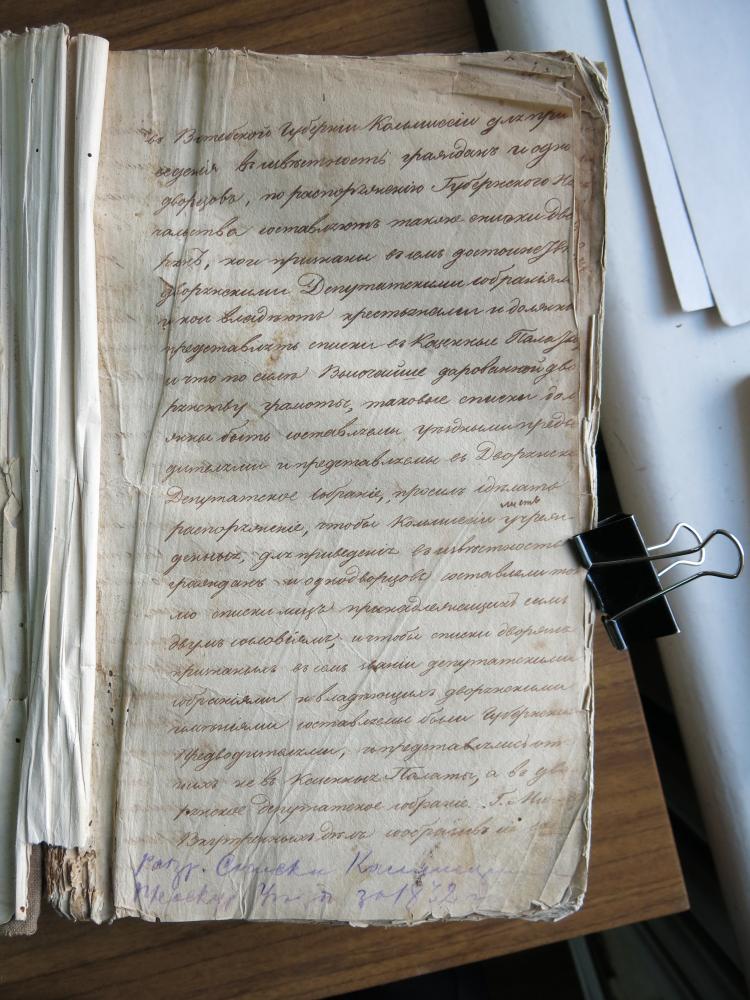 въ Витебской Губерніи Коммиссіи для при
веденія въ извѣстность гражданъ и одно
дворцовъ, по распоряженію Губернского На
чальства составляютъ также списки Дво
рянъ, кои признаны въ семъ достоинствѣ
дворянскими Депутатскими собраніями
и кои владѣютъ крестьянами и должны
представлять списки въ Казенные Палаты
и что по силѣ Высочайше дарованной дво
рянству грамоты, таковые списки дол
жны быть составляемы уѣздными предво
дителями и представляемы въ Дворянское
Депутатское собраніе, просилъ сдѣлать
распоряженіе, чтобы Коммиссіи учреж
денныя, для приведенія въ извѣстность
гражданъ и однодворцовъ составляли то
мо списки лицъ принадлежащихъ симъ
двумъ сословіямъ, и чтобы списки дворянъ
признаныхъ въ семъ званіи депутатскими
собраніями и владѣющихъ дворянскими
имѣніями составляемы были Губернскими
Предводителями, и представлялись от
нихъ не въ Казенныя Палаты, а въ дво
рянское депутатское собраніе. Г. Ми
Внутреннихъ дѣлъ сообразивъ
разр. Списки
за 1832 г